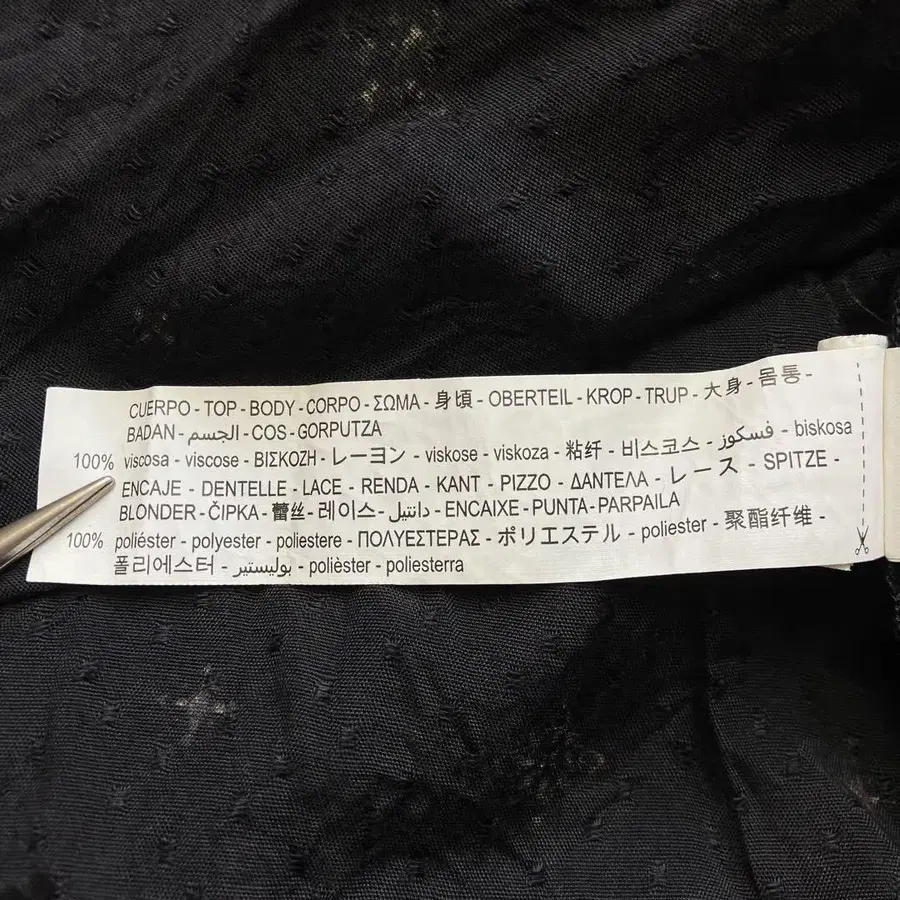 CUERPO - TOP - BODY - CORPO - ΣΩΜΑ - 身頃 - OBERTEIL - KROP - TRUP - 大身 - 몸통 -
BADAN - الجسم - COS - GORPUTZA
100% viscosa - viscose - ΒΙΣΚΟΖΗ - レーヨン - viskose - viskoza - 粘纤 - 비스코스 - فسكوز - biskosa
ENCAJE - DENTELLE - LACE - RENDA - KANT - PIZZO - ΔΑΝΤΕΛΑ - レース - SPITZE -
BLONDER - ČIPKA - 蕾丝 - 레이스 - دانتيل - ENCAIXE - PUNTA - PARPAILA
100% poliéster - polyester - poliestere - ΠΟΛΥΕΣΤΕΡΑΣ - ポリエステル - poliester - 聚酯纤维 -
폴리에스터 - بوليستير - polièster - poliesterra